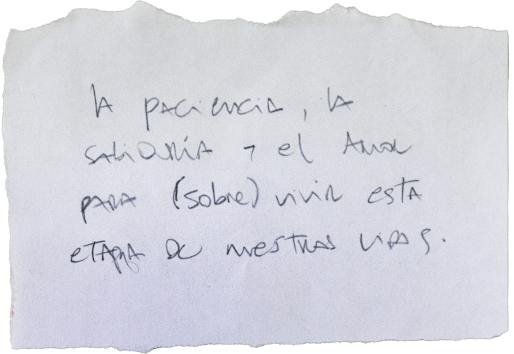 la paciencia, la
sabiduría y el Amor
para (sobre)vivir esta
etapa de nuestras vidas.